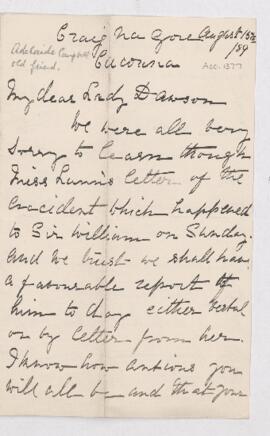 Craig Na Gore August 13th
/89
Cacouna
Adelaide Campbell
old friend.
Acc. 1377
My dear Lady Dawson
We were all very
sorry to learn though
Miss Lunn's letter of the
accident which happened
to Sir William on Sunday.
And we trust we shall have
a favourable report of
him to day either verbal
or by letter from her.
I know how anxious you
will all be and that your